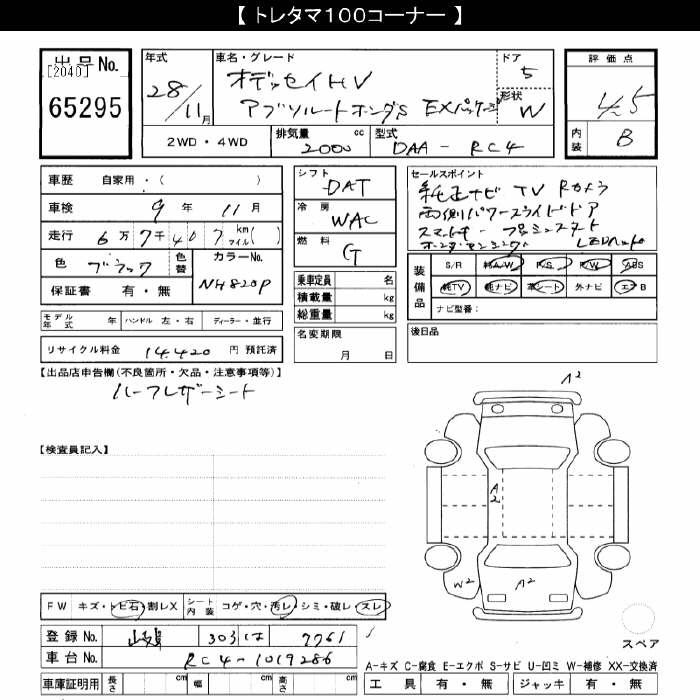 【 トレタマ100コーナー 】
出品No.
[2040]
65295
年式
28/11月
車名・グレード
オデッセイHV
アブソルートホンダS EXパッケージ
ドア
5
形状
W
評価点
4.5
内装
B
2WD・4WD
排気量
2000 cc
型式
DAA - RC4
車歴 自家用・( )
車検 9年 11月
走行 6万7千407 km マイル( )
色 ブラック 色替
カラーNo.
NH820P
保証書 有・無
シフト
DAT
冷房
WAC
燃料
G
乗車定員 名
積載量 kg
総重量 kg
名変期限
月 日
セールスポイント
純正ナビ TV Rカメラ
両側パワースライドドア
スマートキー プッシュスタート
ホンダセンシング
装備品
S/R 純A/W P/S P/W ABS
純TV 純ナビ 革シート 外ナビ エアB
ナビ型番:
後日品
モデル年式 年 ハンドル 左・右 ディーラー・並行
リサイクル料金 14,420 円 預託済
【出品店申告欄(不良箇所・欠品・注意事項等)】
ハーフレザーシート
【検査員記入】
A2
A2
W2 A2
FW キズ・トビ石・割レX シート内装 コゲ・穴・汚レ・シミ・破レ・スレ
登録No. 303 は 7761
車台No. RC4-1019286
車庫証明用 長さ cm 幅 cm 高さ cm
スペア
A-キズ C-腐食 E-エクボ S-サビ U-凹ミ W-補修 XX-交換済
工具 有・無 ジャッキ 有・無